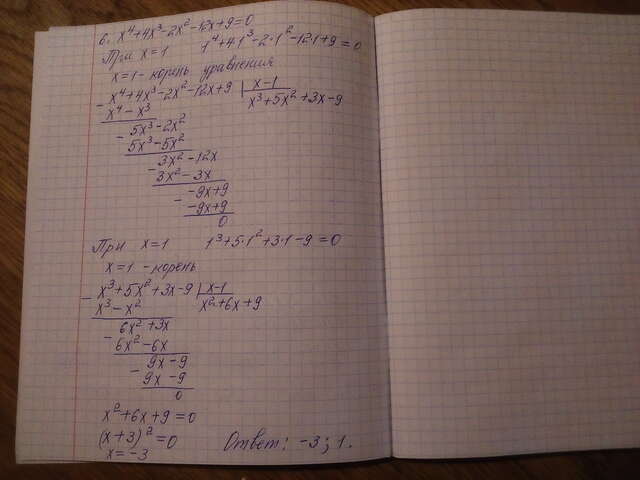 6. x⁴+4x³-2x²-12x+9=0
При x=1 1⁴+4·1³-2·1²-12·1+9=0
x=1 - корень уравнения
- x⁴+4x³-2x²-12x+9 | x-1
x⁴-x³ x³+5x²+3x-9
- 5x³-2x²
5x³-5x²
- 3x²-12x
3x²-3x
- -9x+9
-9x+9
0
При x=1 1³+5·1²+3·1-9=0
x=1 - корень
- x³+5x²+3x-9 | x-1
x³-x² x²+6x+9
- 6x²+3x
6x²-6x
- 9x-9
9x-9
0
x²+6x+9=0
(x+3)²=0 Ответ: -3; 1.
x=-3